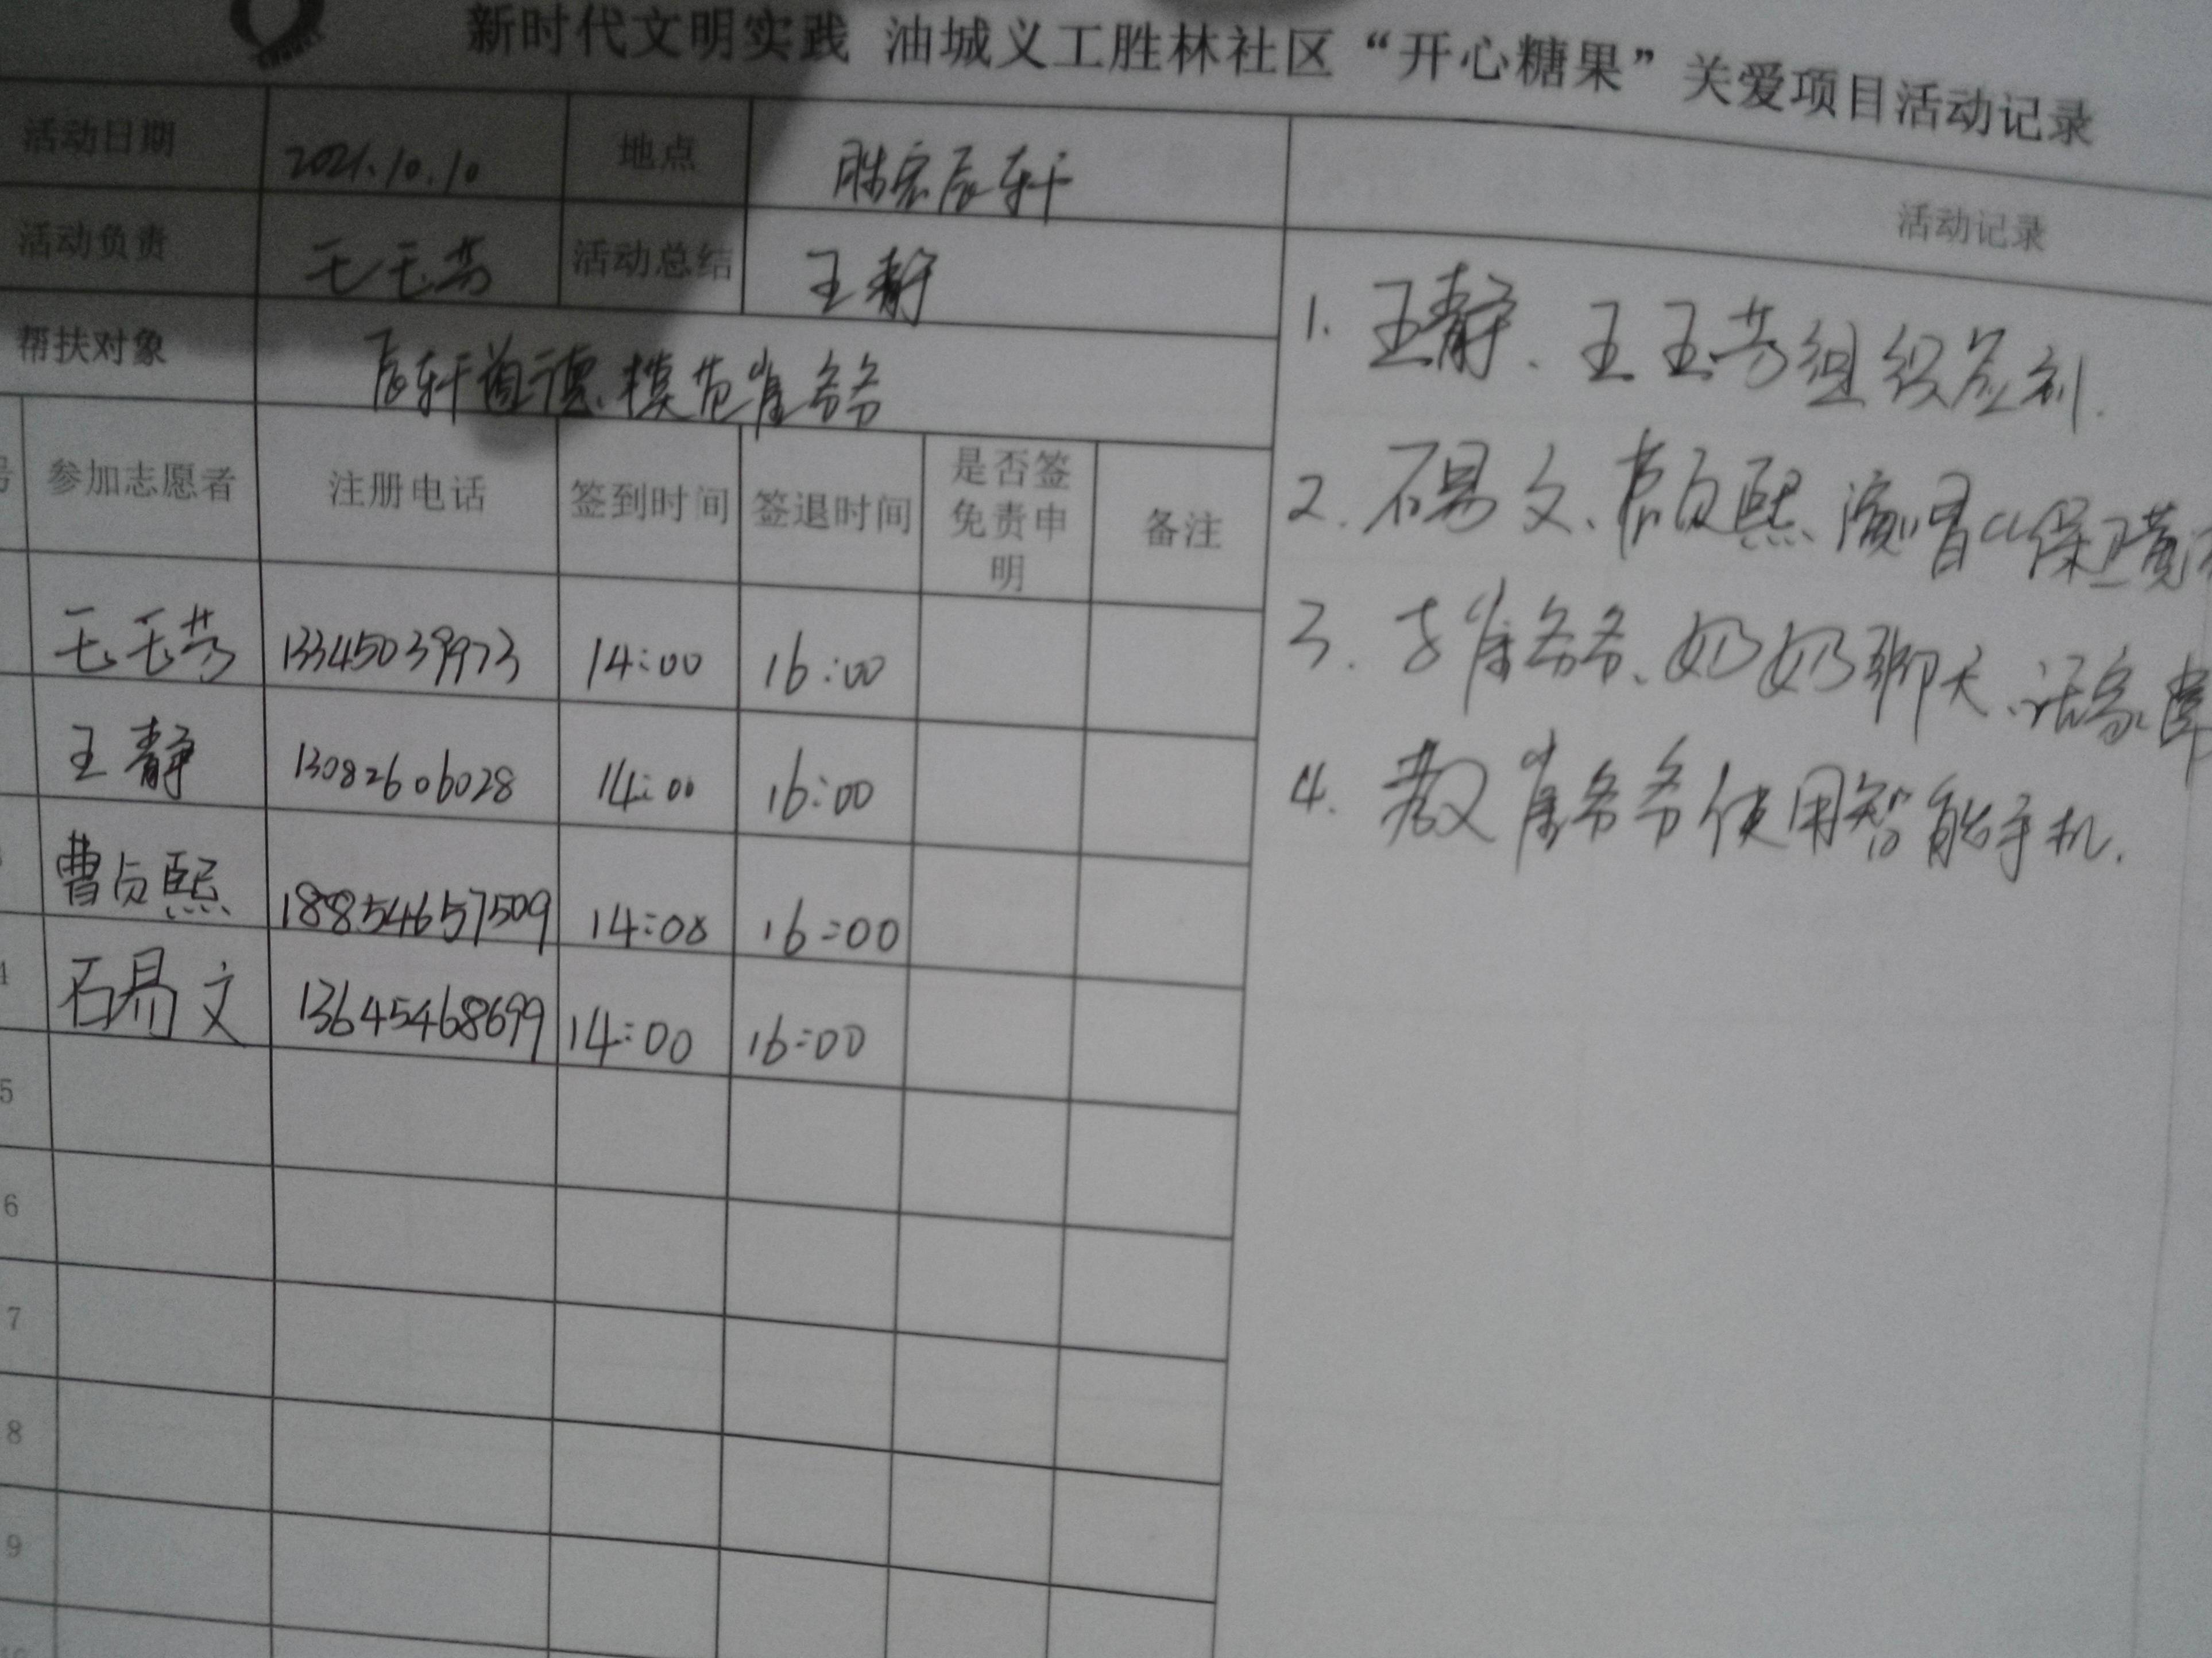 新时代文明实践 油城义工胜林社区“开心糖果”关爱项目活动记录
活动日期 2021.10.10 地点 胜宏辰轩
活动负责 王玉芳 活动总结 王静
帮扶对象 辰轩道德模范崔爷爷
参加志愿者 注册电话 签到时间 签退时间 是否签免责申明 备注
王玉芳 13345039973 14:00 16:00
王静 13082606028 14:00 16:00
曹贞熙 18854657509 14:00 16:00
4 石易文 13645468699 14:00 16:00
5
6
7
8
9
活动记录
1. 王静、王玉芳组织
2. 石易文、曹贞熙演唱“保卫黄
3. 崔爷爷、奶奶聊天、话家常
4. 教崔爷爷使用智能手机.